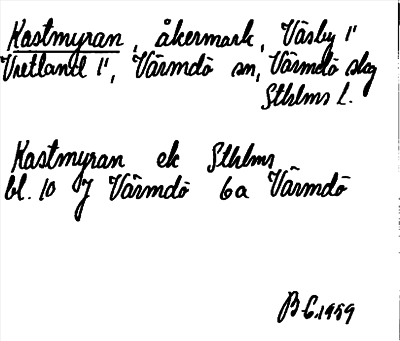 Kastmyran, åkermark, Väsby 1"
Vretland 1", Värmdö sn, Värmdö skg
Sthlms L.
Kastmyran ek Sthlms
bl. 10 J Värmdö 6a Värmdö
1959